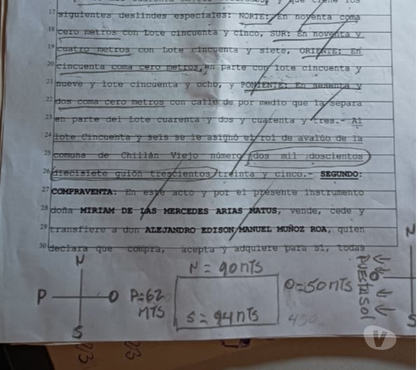 siguientes deslindes especiales: NORTE: En noventa coma
cero metros con Lote cincuenta y cinco, SUR: En noventa y
cuatro metros con Lote cincuenta y siete, ORIENTE: En
cincuenta coma cero metros, en parte con lote cincuenta y
nueve y lote cincuenta y ocho, y PONIENTE: En sesenta y
dos coma cero metros con calle de por medio que la separa
en parte del Lote cuarenta y dos y cuarenta y tres.- Al
lote Cincuenta y seis se le asignó el rol de avalúo de la
25 comuna de Chillán Viejo número dos mil doscientos
26 diecisiete guión trescientos treinta y cinco.- SEGUNDO:
27 COMPRAVENTA: En este acto y por el presente instrumento
28 doña MIRIAM DE LAS MERCEDES ARIAS MATUS, vende, cede y
29 transfiere a don ALEJANDRO EDISON MANUEL MUÑOZ ROA, quien
30 declara que compra, acepta y adquiere para sí, todas
N
P O
S
N = 90 MTS
P=62
MTS
S = 94 MTS
O=50 MTS
PUESTA SOL
N
S
V